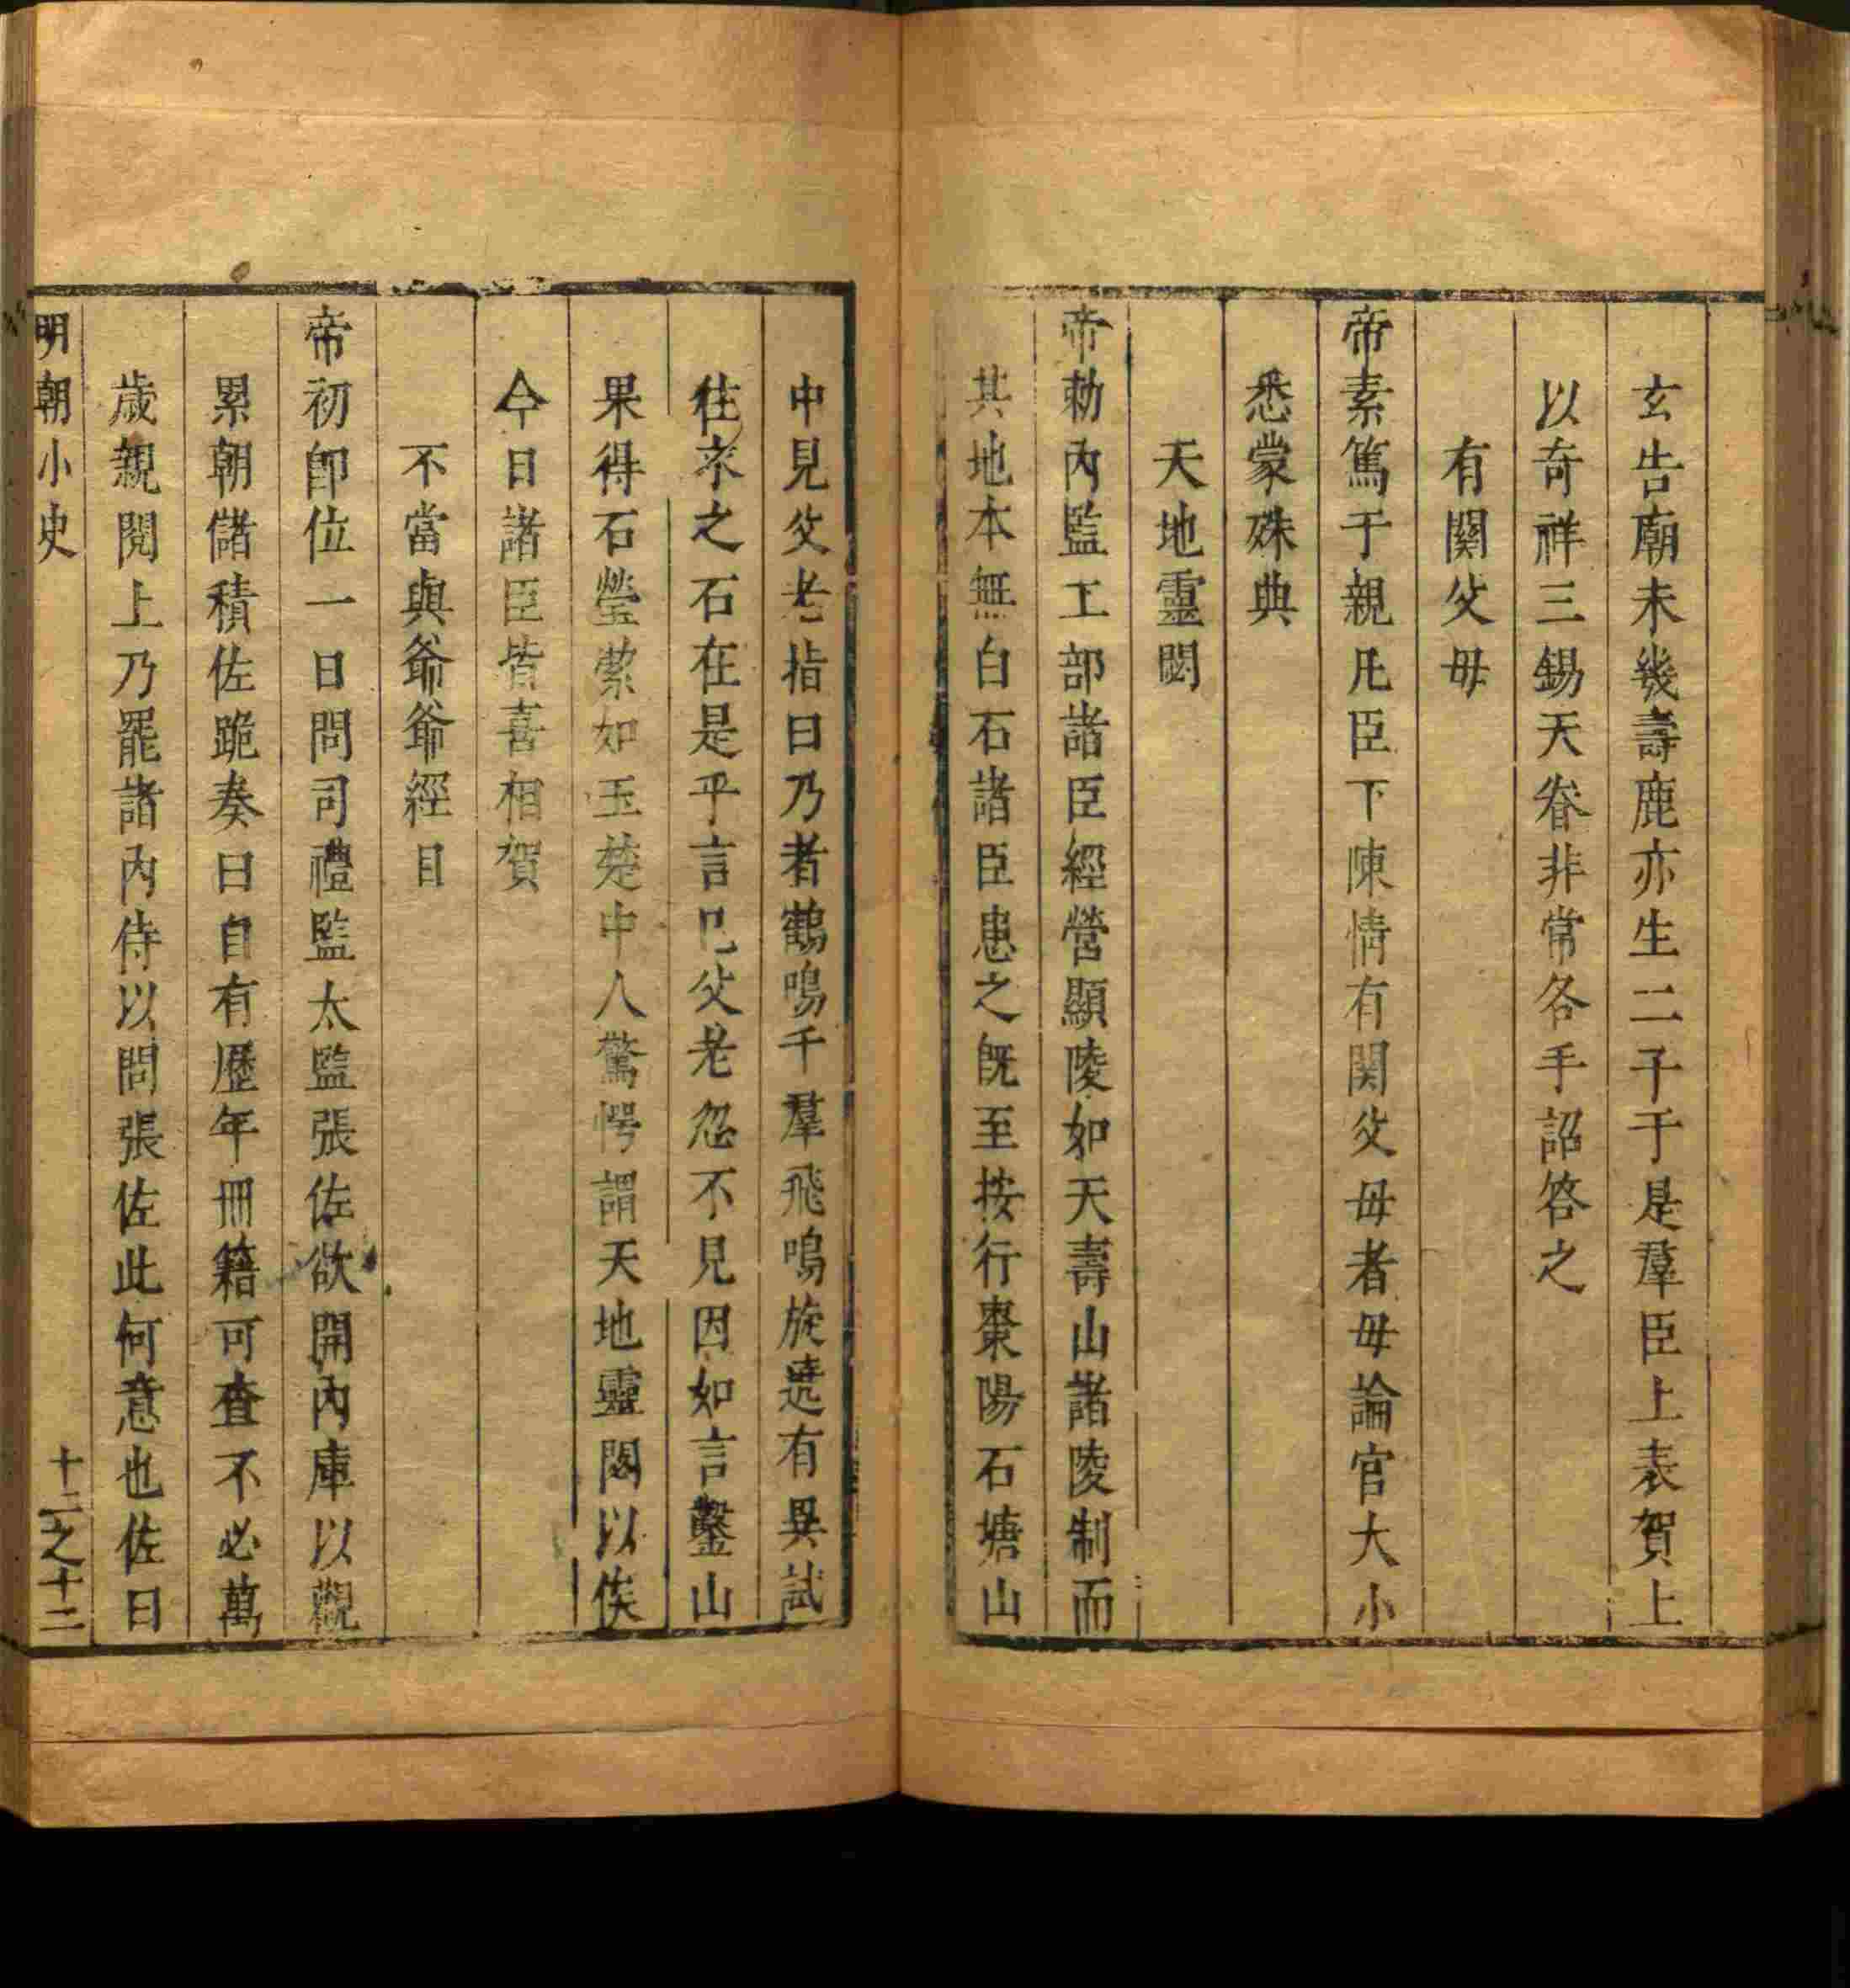 玄告廟未幾壽鹿亦生二子于是羣臣上表賀上
以奇祥三錫天眷非常各手詔答之
有關父母
帝素篤于親凡臣下陳情有関父母者毋論官大小
悉蒙殊典
天地靈閟
帝勅內監工部諸臣經營顯陵如天壽山諸陵制而
其地本無白石諸臣患之旣至按行棗陽石塘山
中見父老指曰乃者鶴鳴千羣飛鳴旋遶有異試
往求之石在是乎言已父老忽不見因如言鑿山
果得石瑩潔如玉楚中人驚愕謂天地靈閟以俟
今日諸臣皆喜相賀
不當與爺爺經目
帝初卽位一日問司禮監太監張佐欲開內庫以觀
累朝儲積佐跪奏曰自有歷年冊籍可查不必萬
歲親閱上乃罷諸內侍以問張佐此何意也佐曰
明朝小史 十二之十二